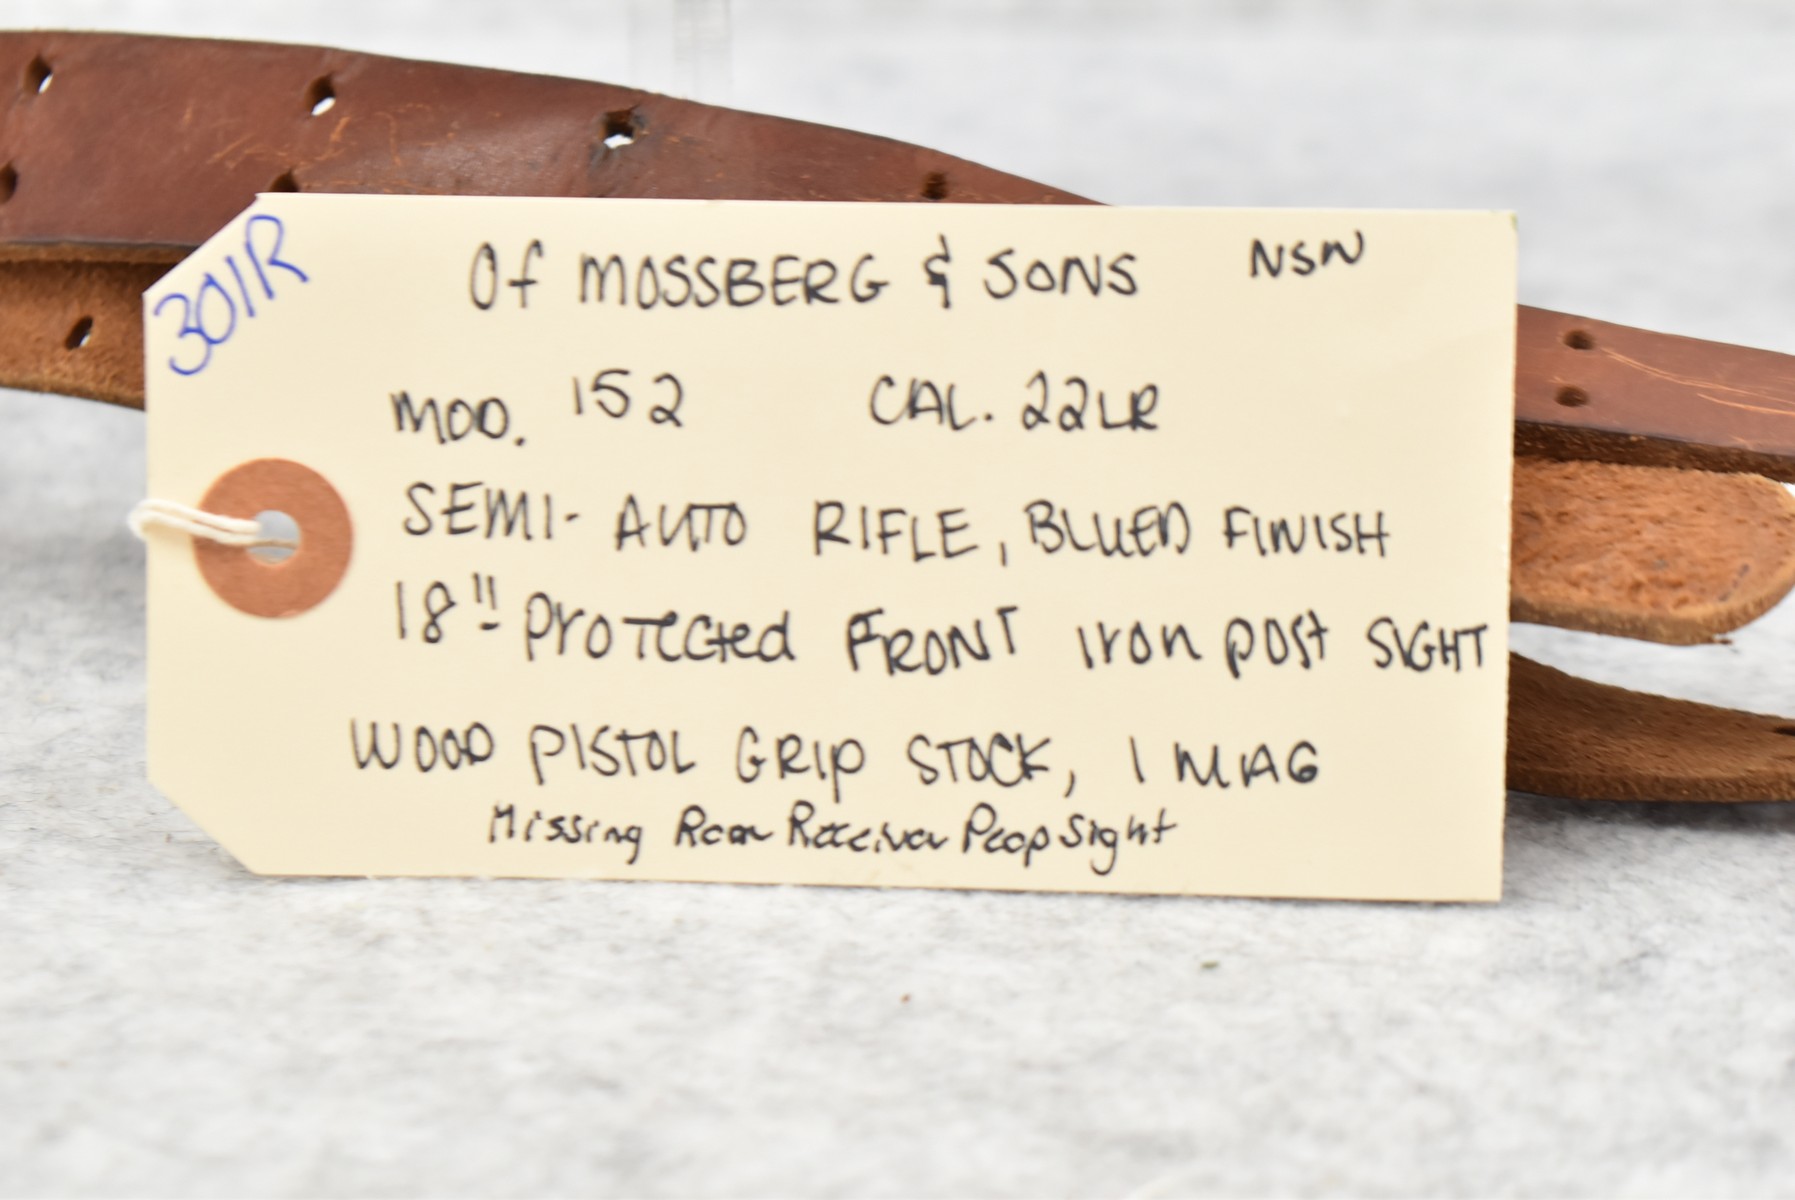 301R
Of MOSSBERG & SONS NSN
MOD. 152 CAL. 22LR
SEMI- AUTO RIFLE, BLUED FINISH
18" Protected FRONT Iron post SIGHT
WOOD PISTOL GRIP STOCK, 1 MAG
Missing Rear Receiver Peep Sight